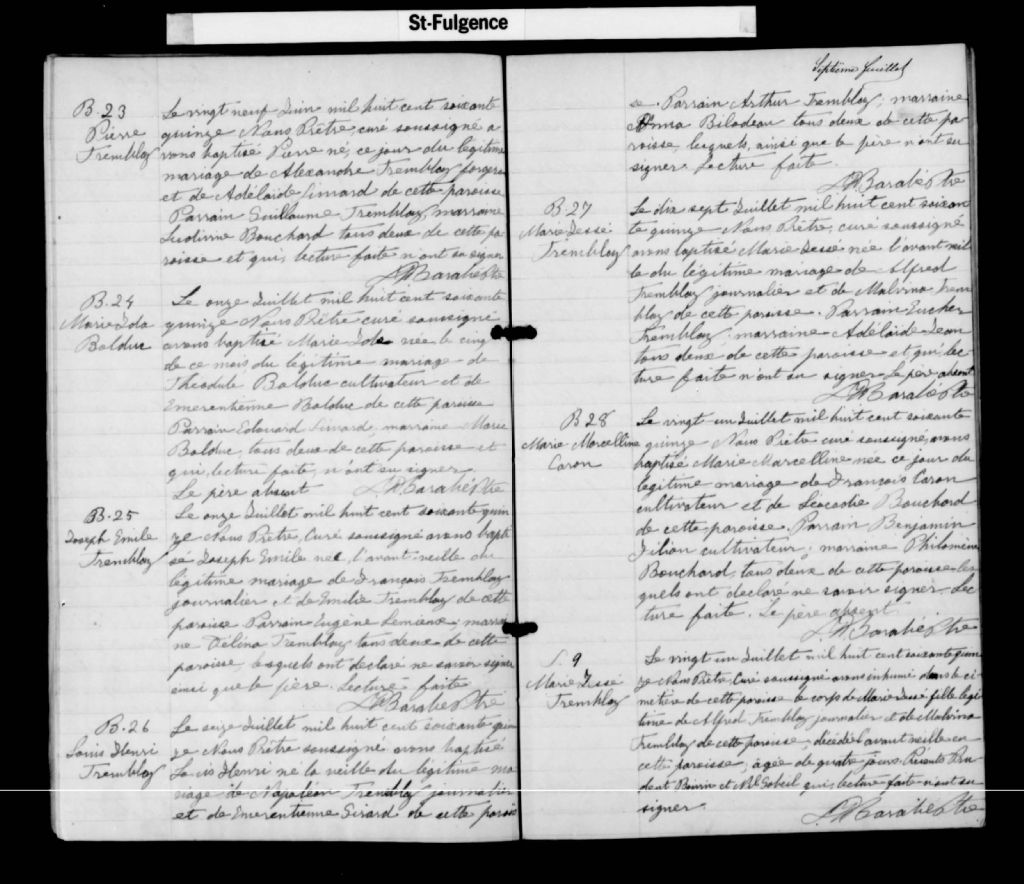 St-Fulgence
B.23
Pierre
Tremblay
Le vingt neuf Juin mil huit cent soixante
quinze Nous Prêtre, curé soussigné a
vons baptisé Pierre né, ce jour du légitime
mariage de Alexandre Tremblay forgeron
et de Adélaide Simard de cette paroisse
Parrain Guillaume Tremblay marraine
Ludivine Bouchard tous deux de cette pa
roisse et qui, lecture faite n'ont su signer
Ptre
B.24
Marie Ida
Bolduc
Le onze Juillet mil huit cent soixante
quinze Nous Prêtre curé soussigné
avons baptisé Marie Ida née le cinq
de ce mois du légitime mariage de
Théodule Bolduc cultivateur et de
Emerentienne Bolduc de cette paroisse
Parrain Edouard Simard, marraine Marie
Bolduc, tous deux de cette paroisse et
qui, lecture faite, n'ont su signer
Le père absent Ptre
B.25
Joseph Emile
Tremblay
Le onze Juillet mil huit cent soixante quin
ze Nous Prêtre, Curé soussigné avons bapti
sé Joseph Emile né, l'avant-veille du
légitime mariage de François Tremblay
journalier et de Emilie Tremblay de cette
paroisse Parrain Eugène Lemieux: marrai
ne Délina Tremblay tous deux de cette
paroisse, lesquels ont déclaré ne savoir signer
ainsi que le père. Lecture faite
Ptre
B.26
Louis Henri
Tremblay
Le seize Juillet mil huit cent soixante quin
ze Nous Prêtre soussigné avons baptisé
Louis Henri né la veille du légitime ma
riage de Napoléon Tremblay journalier
et de Emerentienne Girard de cette parois
Septième feuillet
se. Parrain Arthur Tremblay; marraine
Anna Bilodeau tous deux de cette pa
roisse, lesquels, ainsi que le père n'ont su
signer. Lecture faite.
Ptre
B.27
Marie Jessé
Tremblay
Le dix sept Juillet mil huit cent soixan
te quinze Nous Prêtre, curé soussigné
avons baptisé Marie Jessé née l'avant veil
le du légitime mariage de Alfred
Tremblay journalier et de Malvina Trem
blay de cette paroisse. Parrain Eucher
Tremblay: marraine Adélaide Jean
tous deux de cette paroisse et qui, lec
ture faite n'ont su signer. Le père absent
Ptre
B.28
Marie Marcelline
Caron
Le vingt-un Juillet mil huit cent soixante
quinze Nous Prêtre curé soussigné, avons
baptisé Marie Marcelline née ce jour du
légitime mariage de François Caron
cultivateur et de Léocadie Bouchard
de cette paroisse. Parrain Benjamin
Filion cultivateur; marraine Philomène
Bouchard, tous deux de cette paroisse les
quels ont déclaré ne savoir signer. Lec
ture faite. Le père absent
Ptre
S. 9
Marie Jessé
Tremblay
Le vingt un Juillet mil huit cent soixante quin
ze Nous Prêtre, Curé soussigné avons inhumé dans le ci
metière de cette paroisse le corps de Marie Jessé fille légi
time de Alfred Tremblay journalier et de Malvina
Tremblay de cette paroisse, décédée l'avant veille en
cette paroisse, âgée de quatre jours. Présents Pru
dent et qui, lecture faite n'ont su
signer.
Ptre